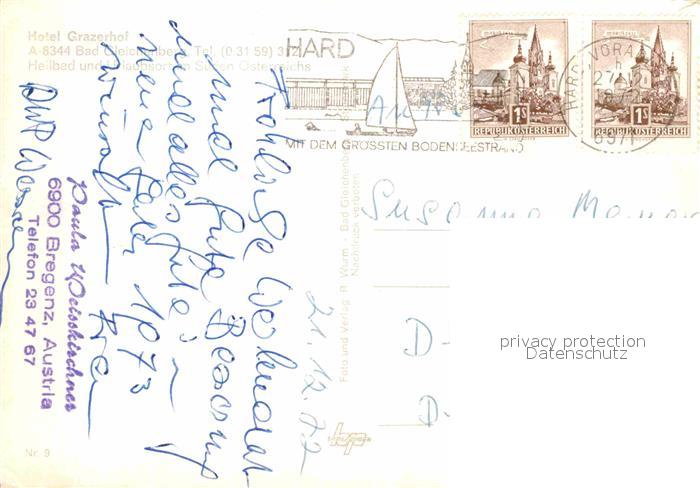 Hotel Grazerhof
A-8344 Bad Gleichenberg, Tel. (0 31 59) 3
Heilbad und Urlaubsort im Süden Österreichs
HARD
MIT DEM GRÖSSTEN BODENSEESTRAND
HARD, VORA
27.12
6971
1S
REPUBLIK ÖSTERREICH
1S
REPUBLIK ÖSTERREICH
An
Susanna
D-
D-
21.12.72
Fröhliche Weihnacht
und gute Besserung
und alles Gute im
neuen Jahr 1973
wünscht
Paula Weisskirchner
6900 Bregenz, Austria
Telefon 23 47 67
Foto und Verlag R. Wurm - Bad Gleichenberg
Nachdruck verboten
Nr. 9
privacy protection
Datenschutz